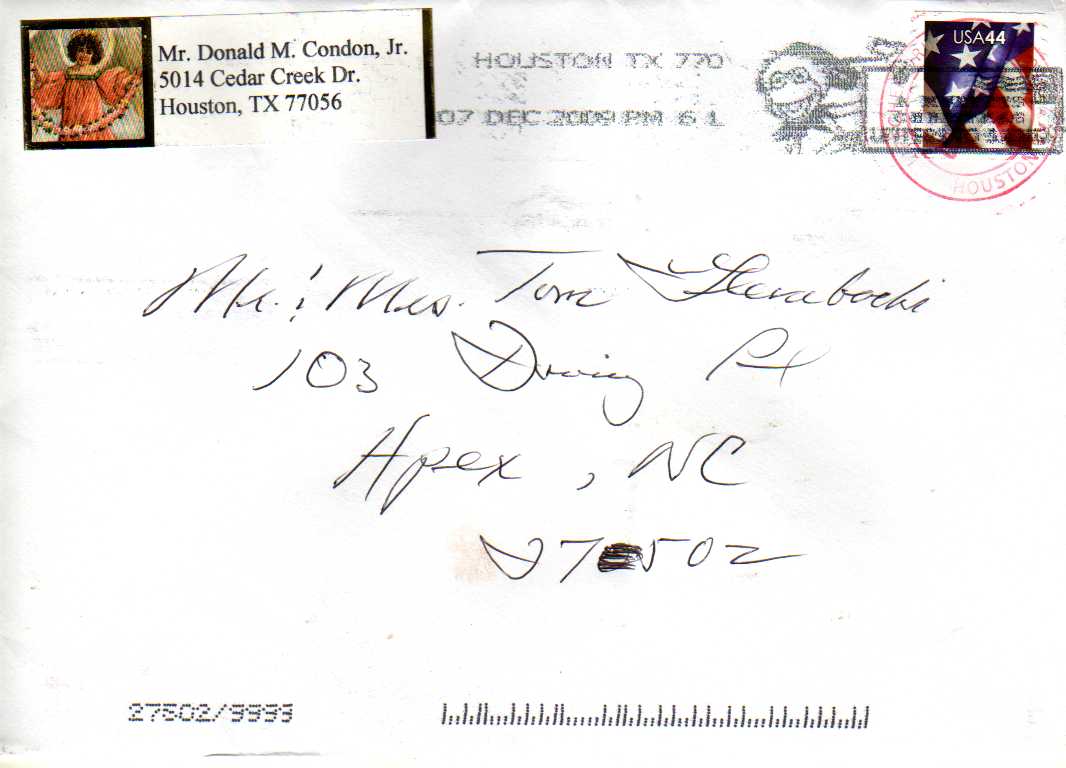 Mr. Donald M. Condon, Jr.
5014 Cedar Creek Dr.
Houston, TX 77056
HOUSTON TX 770
07 DEC 2009 PM 6 L
USA44
HOUSTON
Mr. & Mrs. Tom
103
Apex, NC
27502
27502/9999